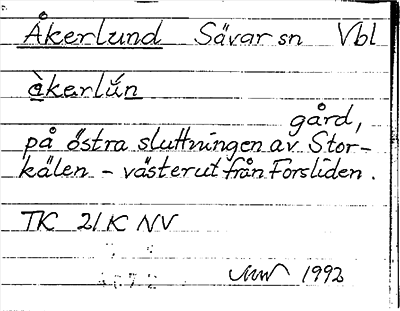 Åkerlund Sävar sn Vbl
àkerlǘn
gård,
på östra sluttningen av Stor-
kälen - västerut från Forsliden.
TK 21K NV
1992